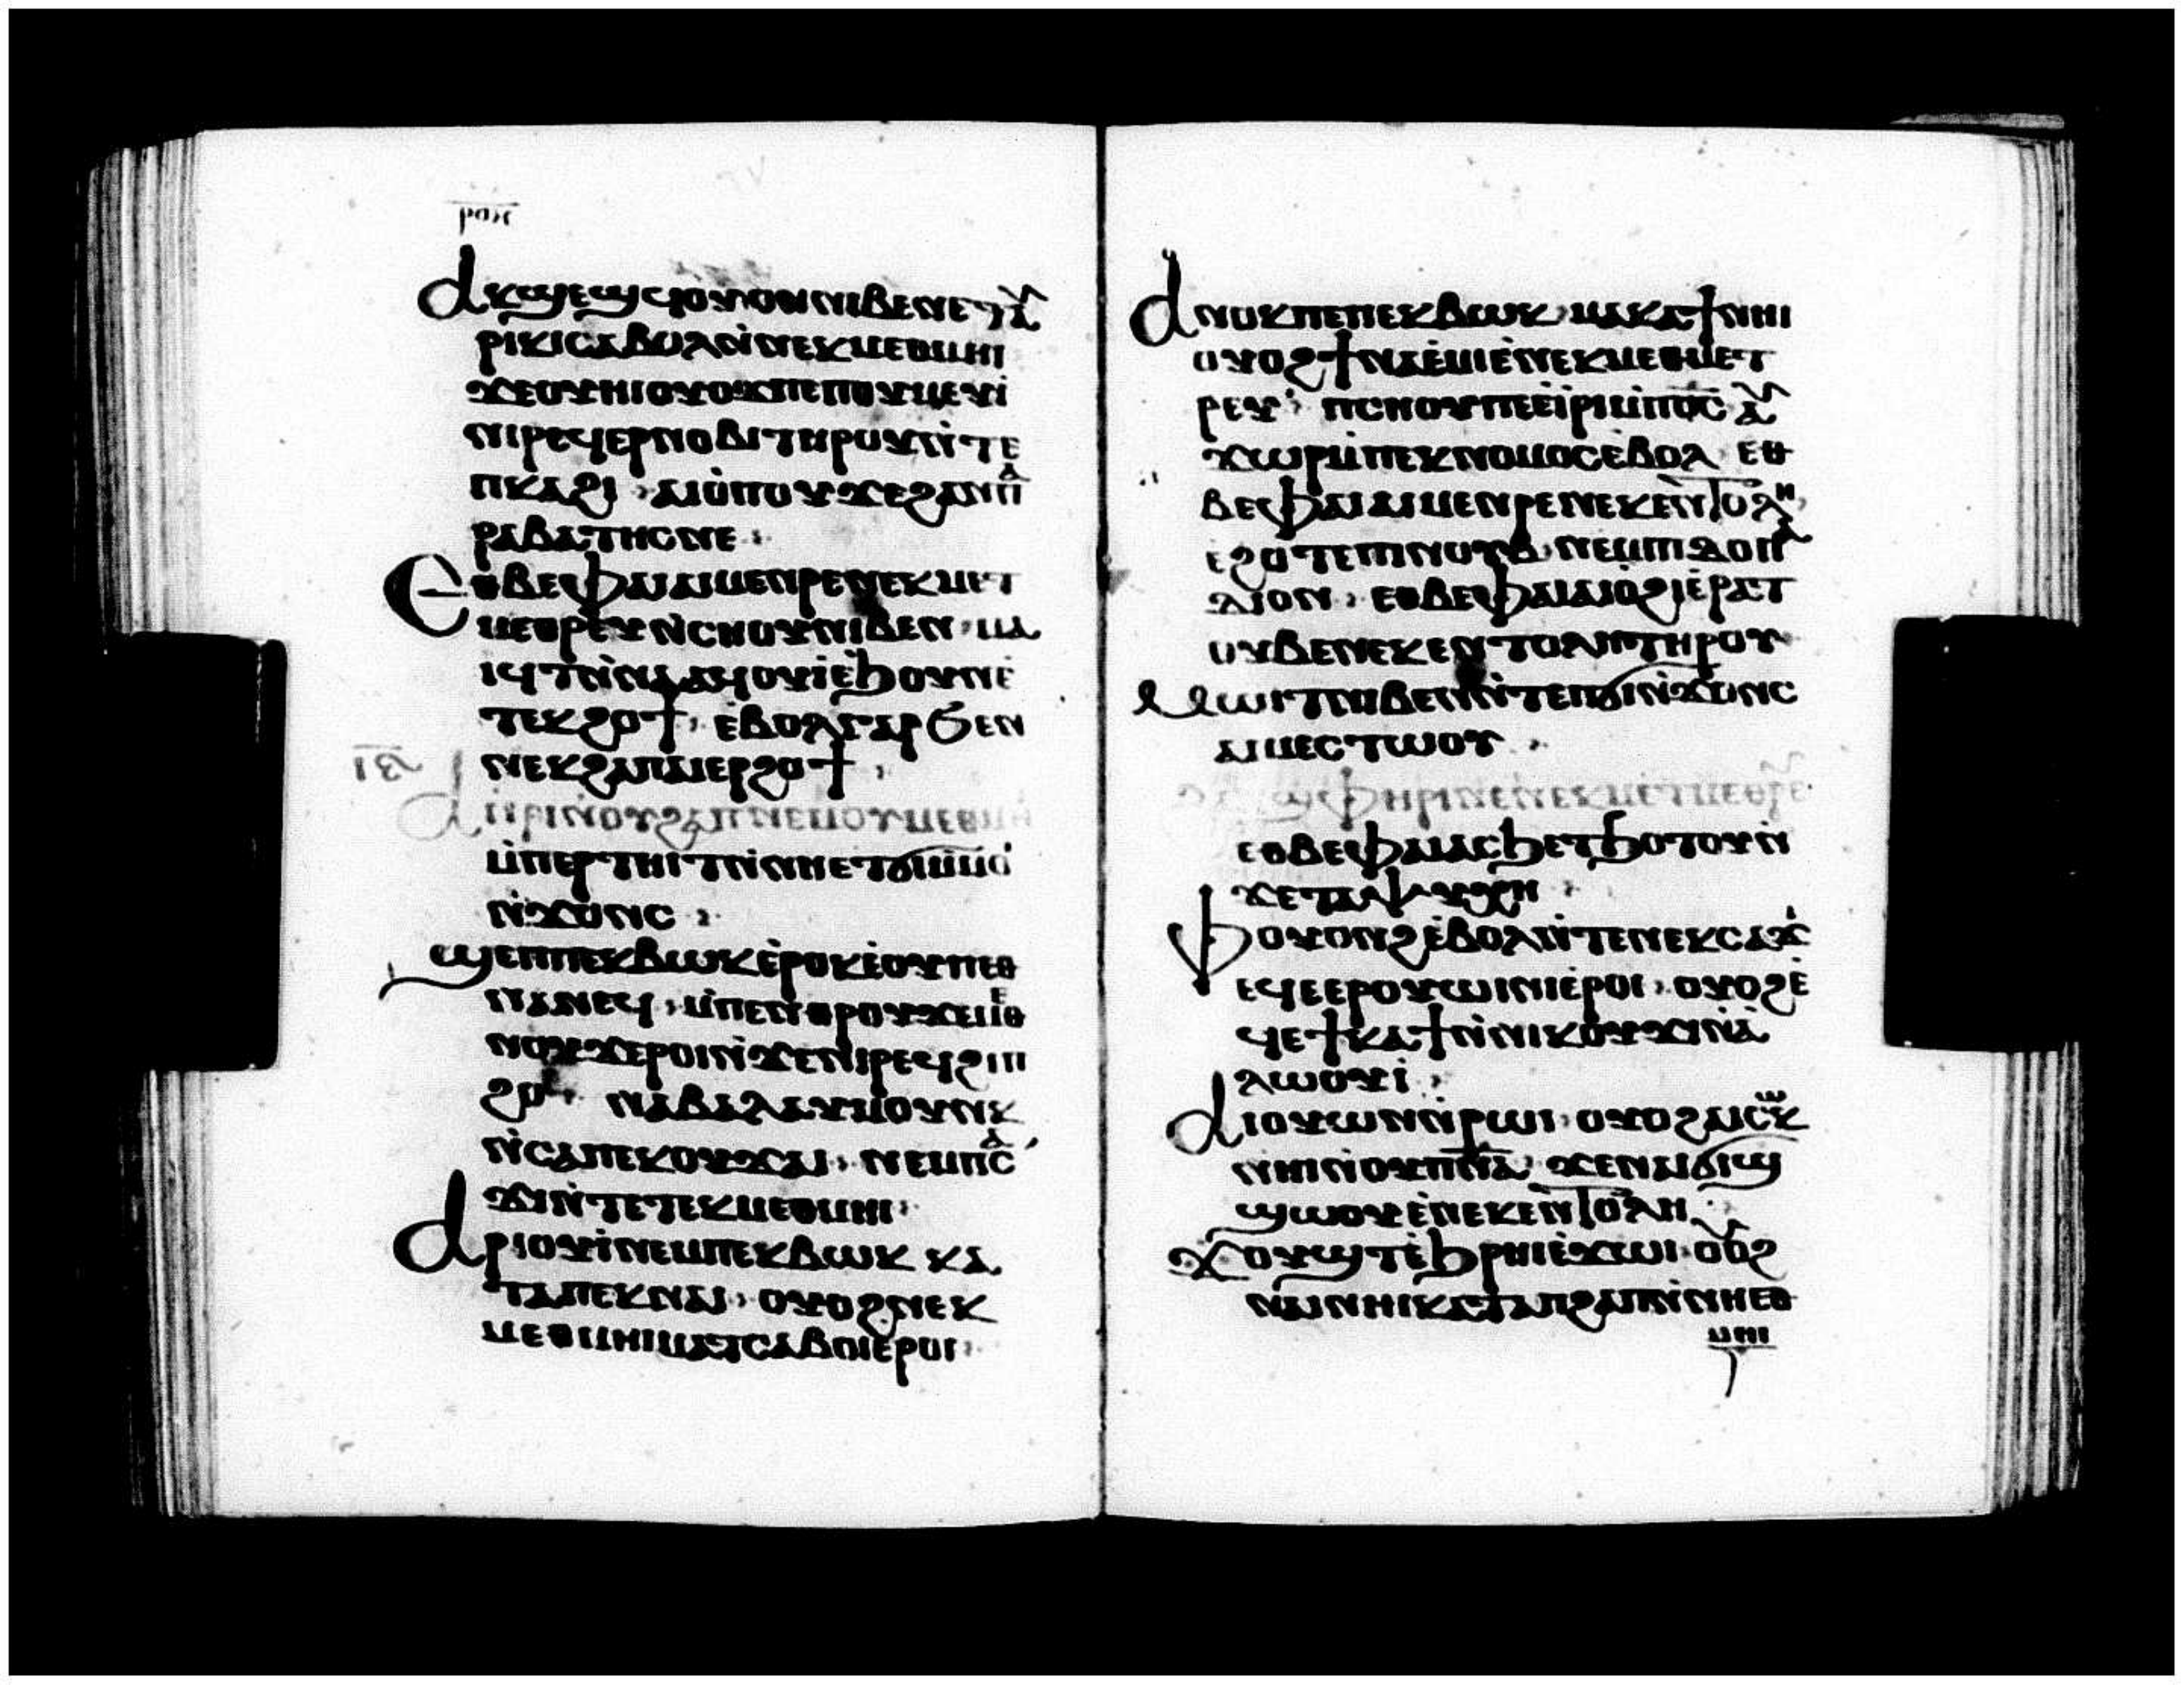 ⲣⲟⲏ
Ⲁⲕϣⲉϣϥⲟⲩⲟⲛⲛⲓⲃⲉⲛⲉⲧⲁ
ⲣⲓⲕⲓⲥⲁⲃⲟⲗⲛ̀ⲛⲉⲕⲙⲉⲑⲙⲏⲓ
ϫⲉⲟⲩⲏⲓⲟⲩⲟϫⲡⲉⲡⲟⲩⲙⲉⲩⲓ̀
ⲛⲓⲣⲉϥⲉⲣⲛⲟⲃⲓⲧⲏⲣⲟⲩⲛ̀ⲧⲉ
ⲡⲕⲁϩⲓ ⲁⲓⲟ̀ⲡⲟⲩϫⲉϩⲁⲛⲡⲁ
ⲣⲁⲃⲁⲧⲏⲥⲛⲉ:
Ⲉⲑⲃⲉⲫⲁⲓⲁⲓⲙⲉⲛⲣⲉⲛⲉⲕⲙⲉⲧ
ⲙⲉⲑⲣⲉⲩⲛ̀ⲥⲏⲟⲩⲛⲓⲃⲉⲛ ⲙⲁ
ⲓϥⲧⲛ̀ⲛⲁⲁϥⲟⲩⲓ̀ⲉ̀ϧⲟⲩⲛⲉ̀
ⲧⲉⲕϩⲟϯ, ⲉ̀ⲃⲟⲗⲅⲁⲣϭⲉⲛ
ⲛⲉⲕϩⲁⲡⲁⲓⲉⲣϩⲟϯ,
ⲓⲋ
Ⲁⲓⲓⲣⲓⲛ̀ⲟⲩϩⲁⲡⲛⲉⲙⲟⲩⲙⲉⲑⲙⲏⲓ
ⲙ̀ⲡⲉⲣⲧⲏⲓⲧⲛ̀ⲛⲏⲉⲧϭⲓⲙ̀ⲙⲟⲓ
ⲛ̀ϫⲟⲛⲥ:
ϣⲉⲡⲡⲉⲕⲃⲱⲕⲉ̀ⲣⲟⲕⲉ̀ⲟⲩⲡⲉⲑ
ⲛⲁⲛⲉϥ, ⲙ̀ⲡⲉⲛⲑⲣⲟⲩϫⲉⲙⲉⲑ
ⲛⲟⲩϫⲉⲣⲟⲓⲛ̀ϫⲉⲛⲓⲣⲉϥϩⲓⲡ
ϩⲟ, ⲛⲁⲃⲁⲗⲁⲩⲙⲟⲩⲛⲕ
ⲛ̀ⲥⲁⲡⲉⲕⲟⲩϫⲁⲓ, ⲛⲉⲙⲡⲥⲁ
ϫⲓⲛ̀ⲧⲉⲧⲉⲕⲙⲉⲑⲙⲏⲓ:
Ⲁⲣⲓⲟⲩⲓ̀ⲛⲉⲙⲡⲉⲕⲃⲱⲕ ⲕⲁ
ⲧⲁⲡⲉⲕⲛⲁⲓ, ⲟⲩⲟϩⲛⲉⲕ
ⲙⲉⲑⲙⲏⲓⲙⲁⲧⲥⲁⲃⲟⲓⲉ̀ⲣⲟⲓ:
Ⲁⲛⲟⲕⲡⲉⲡⲉⲕⲃⲱⲕ, ⲙⲁⲕⲁϯⲛⲏⲓ
ⲟⲩⲟϩϯⲛⲁⲉ̀ⲙⲓⲉ̀ⲛⲉⲕⲙⲉⲑⲙⲉⲧ
ⲣⲉⲩ: ⲡⲥⲏⲟⲩⲡⲉⲉ̀ⲓ̀ⲣⲓⲙ̀ⲡⲟ̅ⲥ̅ ⲁⲩ
ϫⲱⲣⲙ̀ⲡⲉⲕⲛⲟⲙⲟⲥⲉ̀ⲃⲟⲗ ⲉⲑ
ⲃⲉⲫⲁⲓⲁⲓⲙⲉⲛⲣⲉⲛⲉⲕⲉⲛⲧⲟⲗⲏ
ⲉϩⲟⲧⲉⲡⲓⲛⲟⲩⲃ, ⲛⲉⲙⲡⲓⲇⲟⲡⲁ
ⲇⲓⲟⲛ, ⲉⲑⲃⲉⲫⲁⲓⲁⲓⲟ̀ϩⲓⲉ̀ⲣⲁⲧ
ⲟⲩⲃⲉⲛⲉⲕⲉⲛⲧⲟⲗⲏⲧⲏⲣⲟⲩ
Ⲙⲱⲓⲧⲛⲓⲃⲉⲛⲛ̀ⲧⲉⲡϭⲓⲛ̀ϫⲟⲛⲥ
ⲁⲓⲙⲉⲥⲧⲱⲟⲩ:
ϣⲫⲏⲣⲓⲛⲉⲛⲉⲕⲙⲉⲧⲙⲉⲑⲣⲉ
ⲉⲑⲃⲉⲫⲁⲓⲁⲥϧⲉⲧϧⲟⲧⲟⲩⲛ̀
ϫⲉⲧⲁⲯⲩⲭⲏ:
Ⲫⲟⲩⲟⲛϩⲉ̀ⲃⲟⲗⲛ̀ⲧⲉⲛⲉⲕⲥⲁϫⲓ
ⲉϥⲉⲉⲣⲟⲩⲱⲓⲛⲓⲉ̀ⲣⲟⲓ, ⲟⲩⲟϩⲉ̀
ϥⲉϯⲕⲁϯⲛ̀ⲛⲓⲕⲟⲩϫⲓⲛⲁ̀
ⲗⲱⲟⲩⲓ̀:
Ⲁⲓⲟⲩⲱⲛⲛ̀ⲣⲱⲓ, ⲟⲩⲟϩⲁⲓⲥⲱⲕ
ⲛⲏⲓⲛ̀ⲟⲩⲡⲛ̅ⲁ̅ ϫⲉⲛⲁⲓϭⲓϣ
ϣⲱⲟⲩⲉ̀ⲛⲉⲕⲉⲛⲧⲟⲗⲏ:
Ϫⲟⲩϣⲧⲉ̀ϧⲣⲏⲓⲉ̀ϫⲱⲓ ⲟⲩⲟϩ
ⲛⲁⲓⲛⲏⲓⲕⲁⲧⲁⲡϩⲁⲡⲛ̀ⲛⲏⲉⲑ
ⲙⲏⲓ